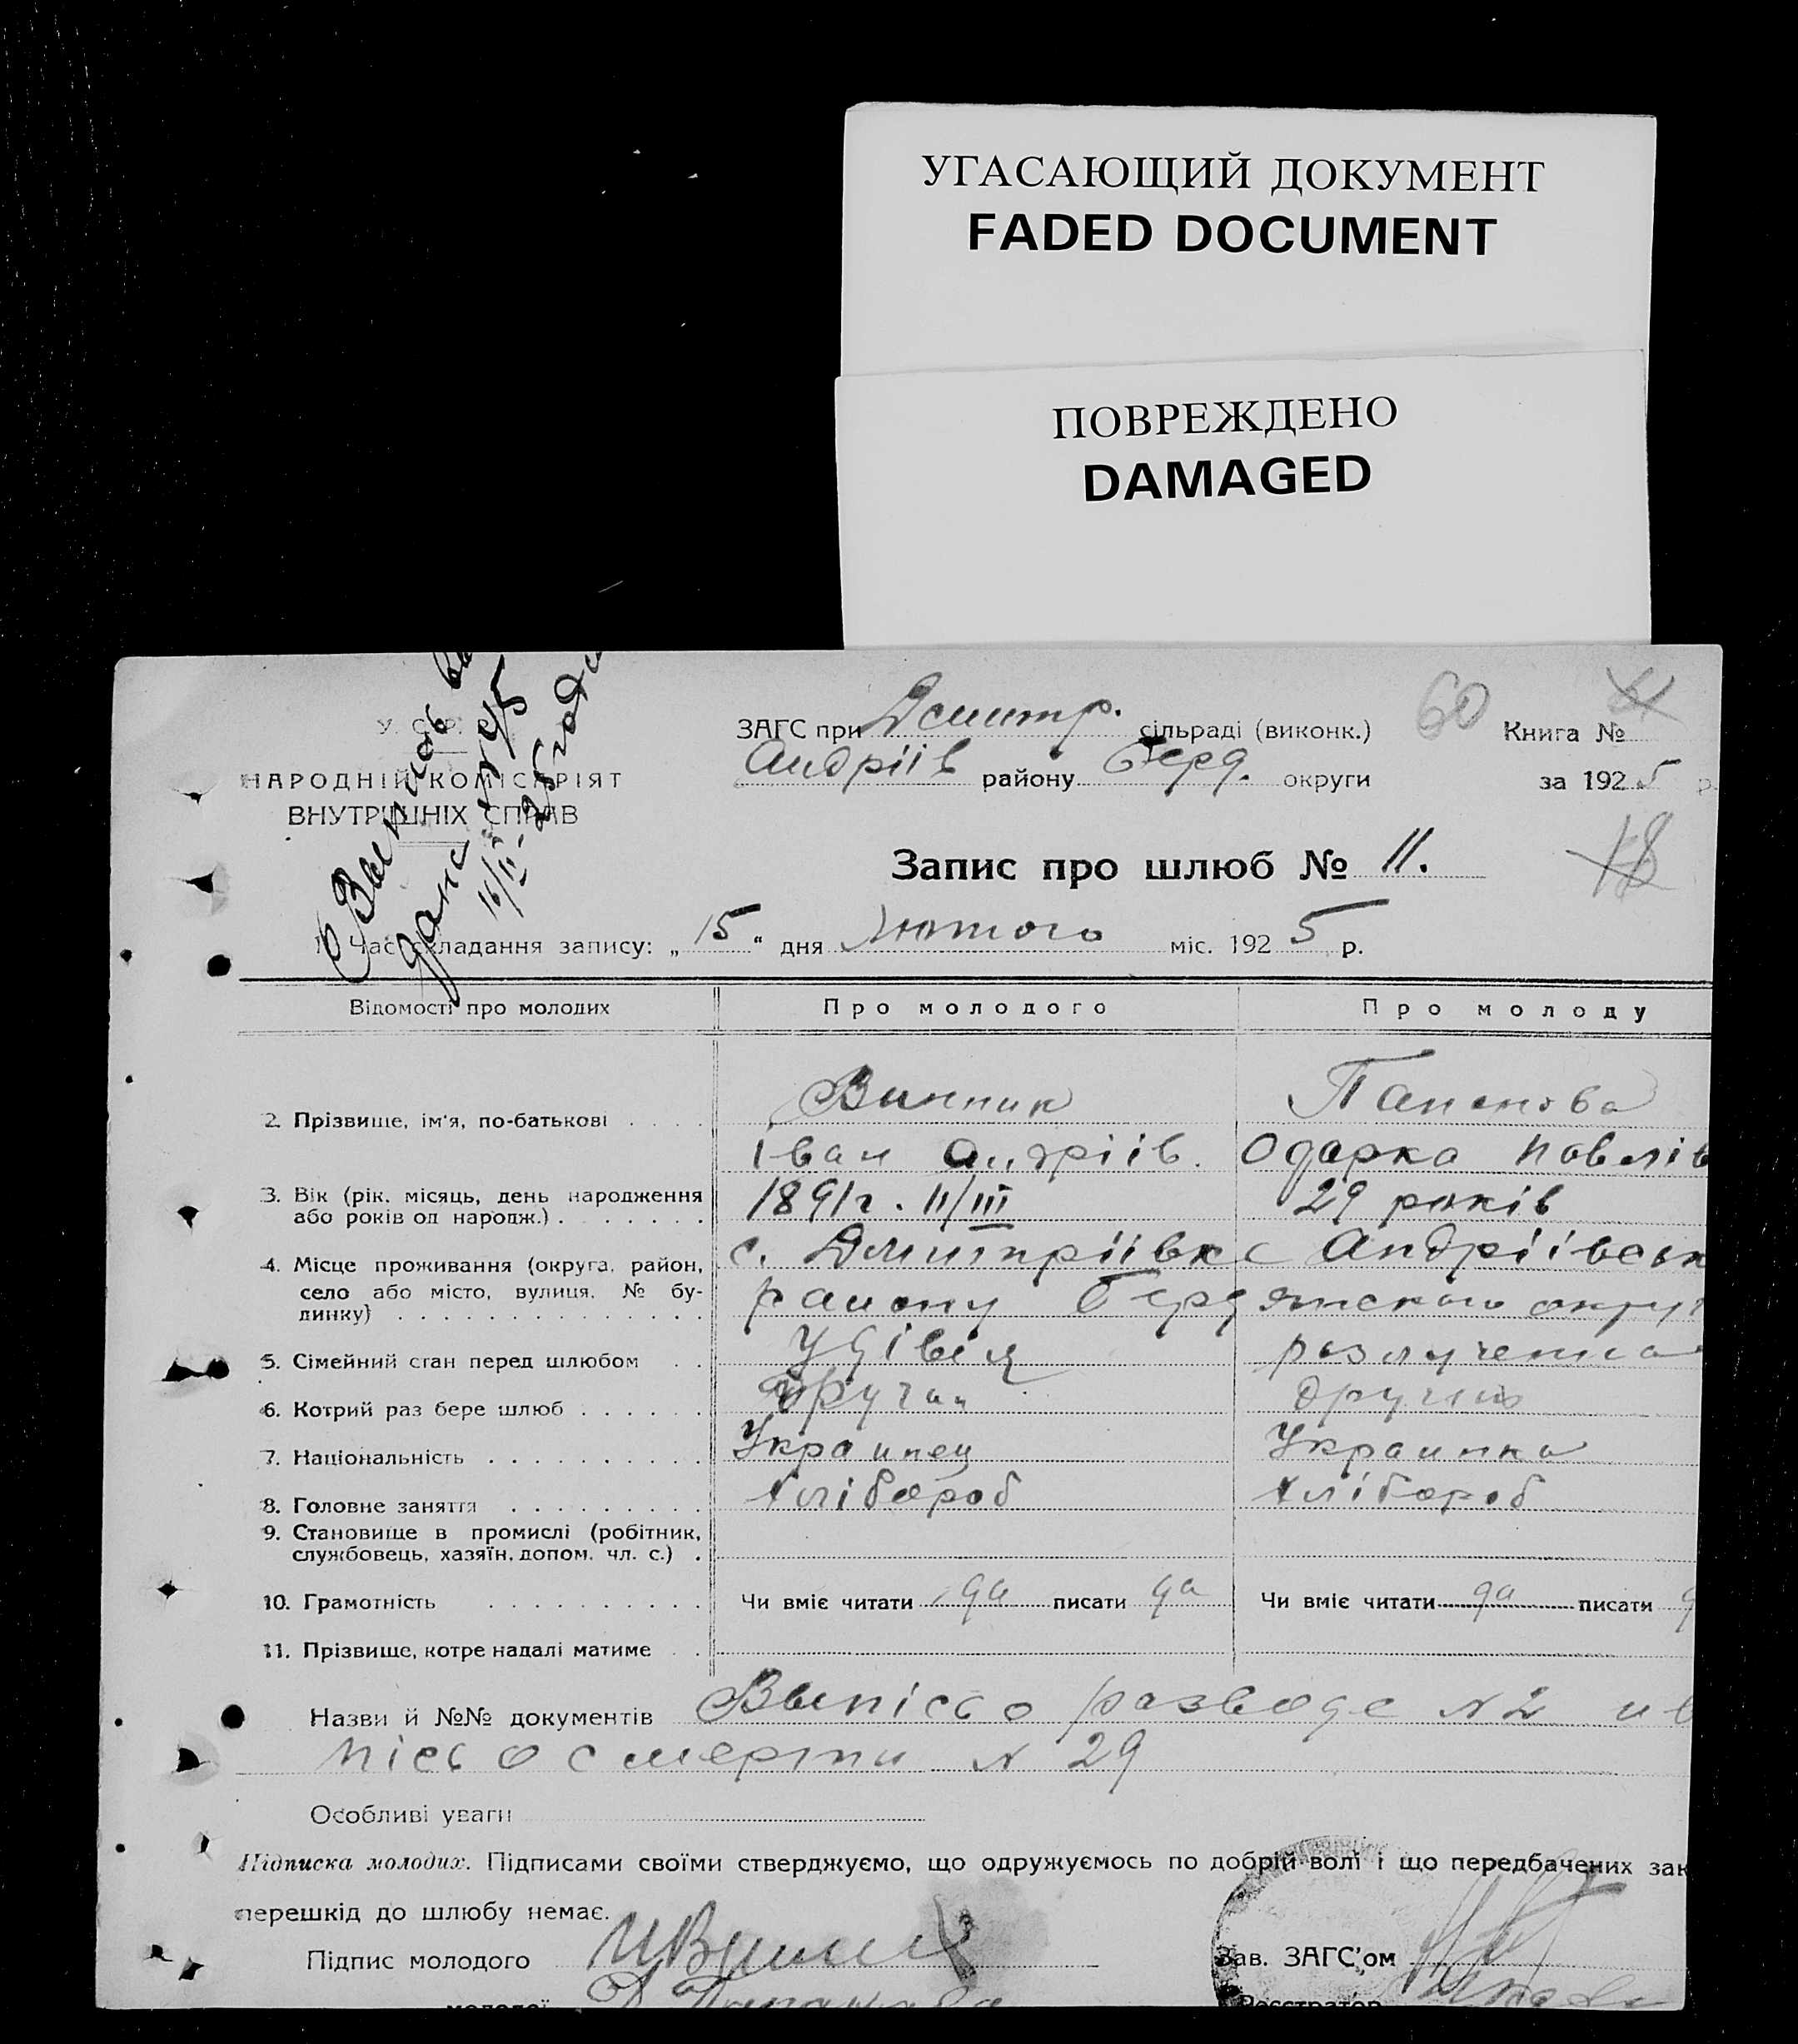 УГАСАЮЩИЙ ДОКУМЕНТ
FADED DOCUMENT
ПОВРЕЖДЕНО
DAMAGED
У. С. Р. Р.
НАРОДНІЙ КОМІСАРІЯТ
ВНУТРІШНІХ СПРАВ
ЗАГС при Дмитр. сільраді (виконк.)
Андріїв району Берд. округи
60
Книга №
за 1925 р.
Запис про шлюб № 11.
18
16/II 25 года
1. Час складання запису: „15" дня Лютого міс. 1925 р.
Відомості про молодих Про молодого Про молоду
Винник Папанова
2. Прізвище, ім'я, по-батькові . . . .
Іван Андріїв. Одарка Павлів
3. Вік (рік, місяць, день народження 1891 г. 11/III 29 років
або років од народж.) . . . . . . .
4. Місце проживання (округа, район, с. Дмитріївка Андріївськ
село або місто, вулиця, № бу-
динку) . . . . . . . . . . . . . . району Бердянского округ
5. Сімейний стан перед шлюбом . . Удівец розлучена
6. Котрий раз бере шлюб . . . . . . другий другий
7. Національність . . . . . . . . . . Украинец Украинка
8. Головне заняття . . . . . . . . . Хлібороб Хлібороб
9. Становище в промислі (робітник,
службовець, хазяїн, допом. чл. с.) .
10. Грамотність . . . . . . . . . . Чи вміє читати да писати да Чи вміє читати да писати
11. Прізвище, котре надалі матиме . .
Назви й №№ документів Выпісь о разводе N 2 и в
пісь о смерти N 29
Особливі уваги
Підписка молодих. Підписами своїми стверджуємо, що одружуємось по добрій волі і що передбачених зак
перешкід до шлюбу немає.
Підпис молодого ИВинник Зав. ЗАГС'ом
молодої Реєстратор